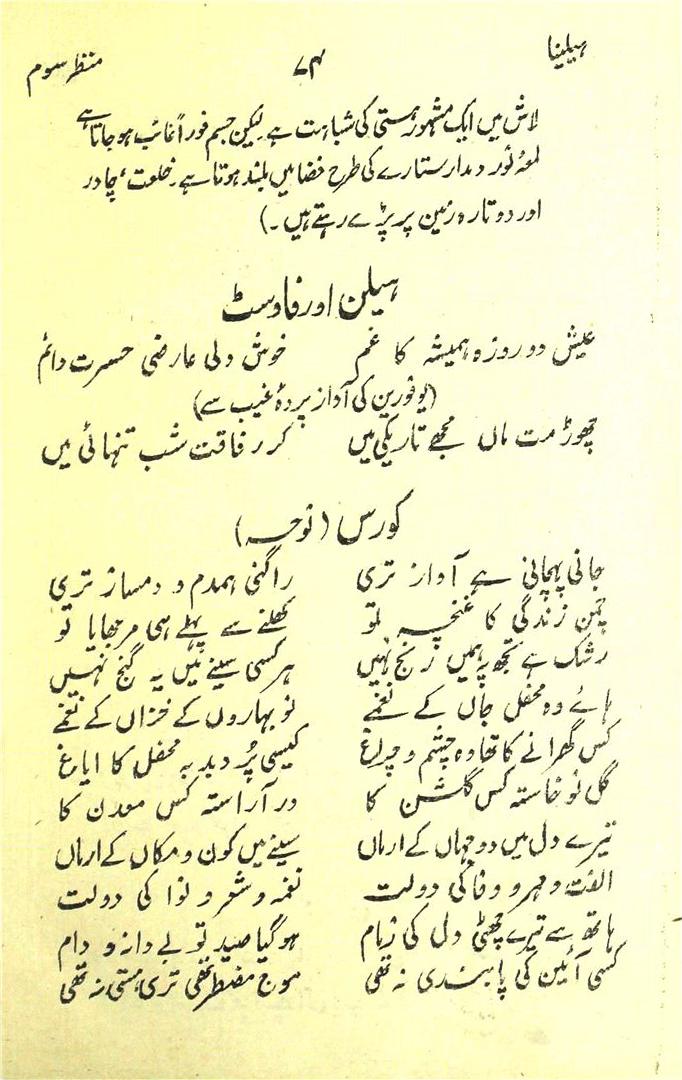 ہیلینا ۷۴ منظر سوم
لاش میں ایک مشہور ہستی کی شباہت ہے۔ لیکن جسم فوراً غائب ہو جاتا ہے
لمعۂ نور دمدار ستارے کی طرح فضا میں بلند ہوتا ہے۔ خلعت، چادر
اور دوتارہ زمین پر پڑے رہتے ہیں۔)
ہیلن اور فاوسٹ
عیش دو روزہ ہمیشہ کا غم خوش دلی عارضی حسرت دائم
(یوفورین کی آواز پردۂ غیب سے)
چھوڑ مت ماں مجھے تاریکی میں کر رفاقت شب تنہائی میں
کورس (نوحہ)
جانی پہچانی ہے آواز تری راگنی ہمدم و دمساز تری
چمن زندگی کا غنچہ تو کھلنے سے پہلے ہی مرجھایا تو
رشک ہے تجھ پہ ہمیں رنج نہیں ہر کسی سینے میں یہ گنج نہیں
ہائے وہ محفل جاں کے نغمے نو بہاروں کے خزاں کے نغمے
کس گھرانے کا تھا وہ چشم و چراغ کیسی پُر دبدبہ محفل کا ایاغ
گل نو خاستہ کس گلشن کا در آراستہ کس معدن کا
تیرے دل میں دو جہاں کے ارماں سینے میں کون و مکاں کے ارماں
الفت و مہر و وفا کی دولت نغمہ و شعر و نوا کی دولت
ہاتھ سے تیرے چھٹی دل کی زمام ہو گیا صید تو بے دانہ و دام
کسی آئین کی پابندی نہ تھی موج مضطر تھی تری ہستی نہ تھی